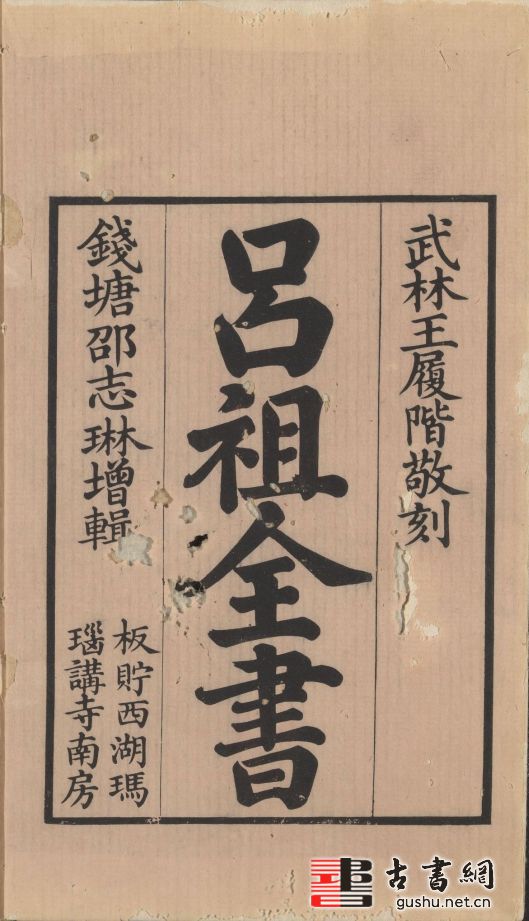 武林王履階敬刻
呂祖全書
錢塘邵志琳增輯
板貯西湖瑪
瑙講寺南房
古書網
gushu.net.cn